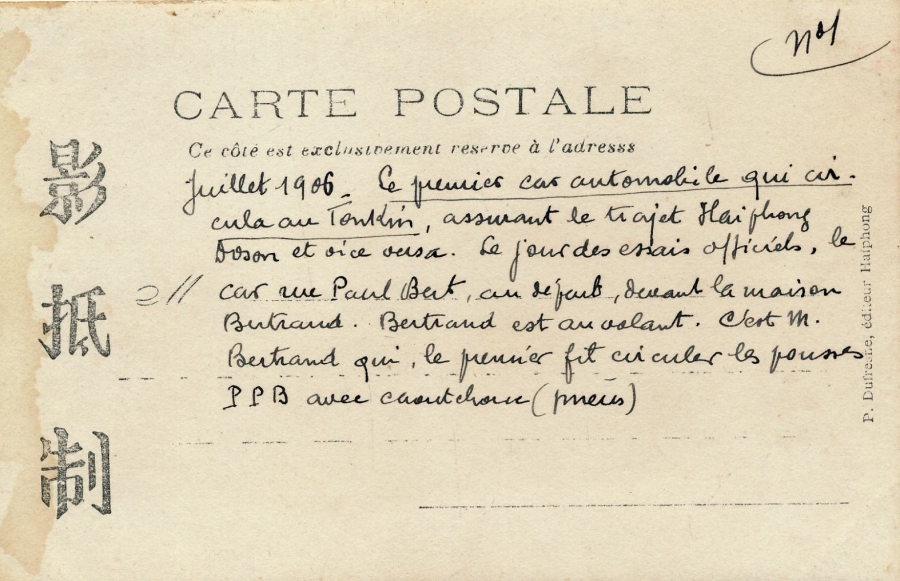 No 1
CARTE POSTALE
Ce côté est exclusivement reserve à l'adresss
Juillet 1906_ Le premier car automobile qui cir-
cula au Tonkin, assurant le trajet Haiphong
Doson et vice versa. Le jour des essais officiels, le
car rue Paul Bert, au départ, devant la maison
Bertrand. Bertrand est au volant. C'est M.
Bertrand qui, le premier fit circuler les pousses
PPB avec caoutchouc (pneus)
影
抵
制
P. Dufresne, éditeur Haiphong